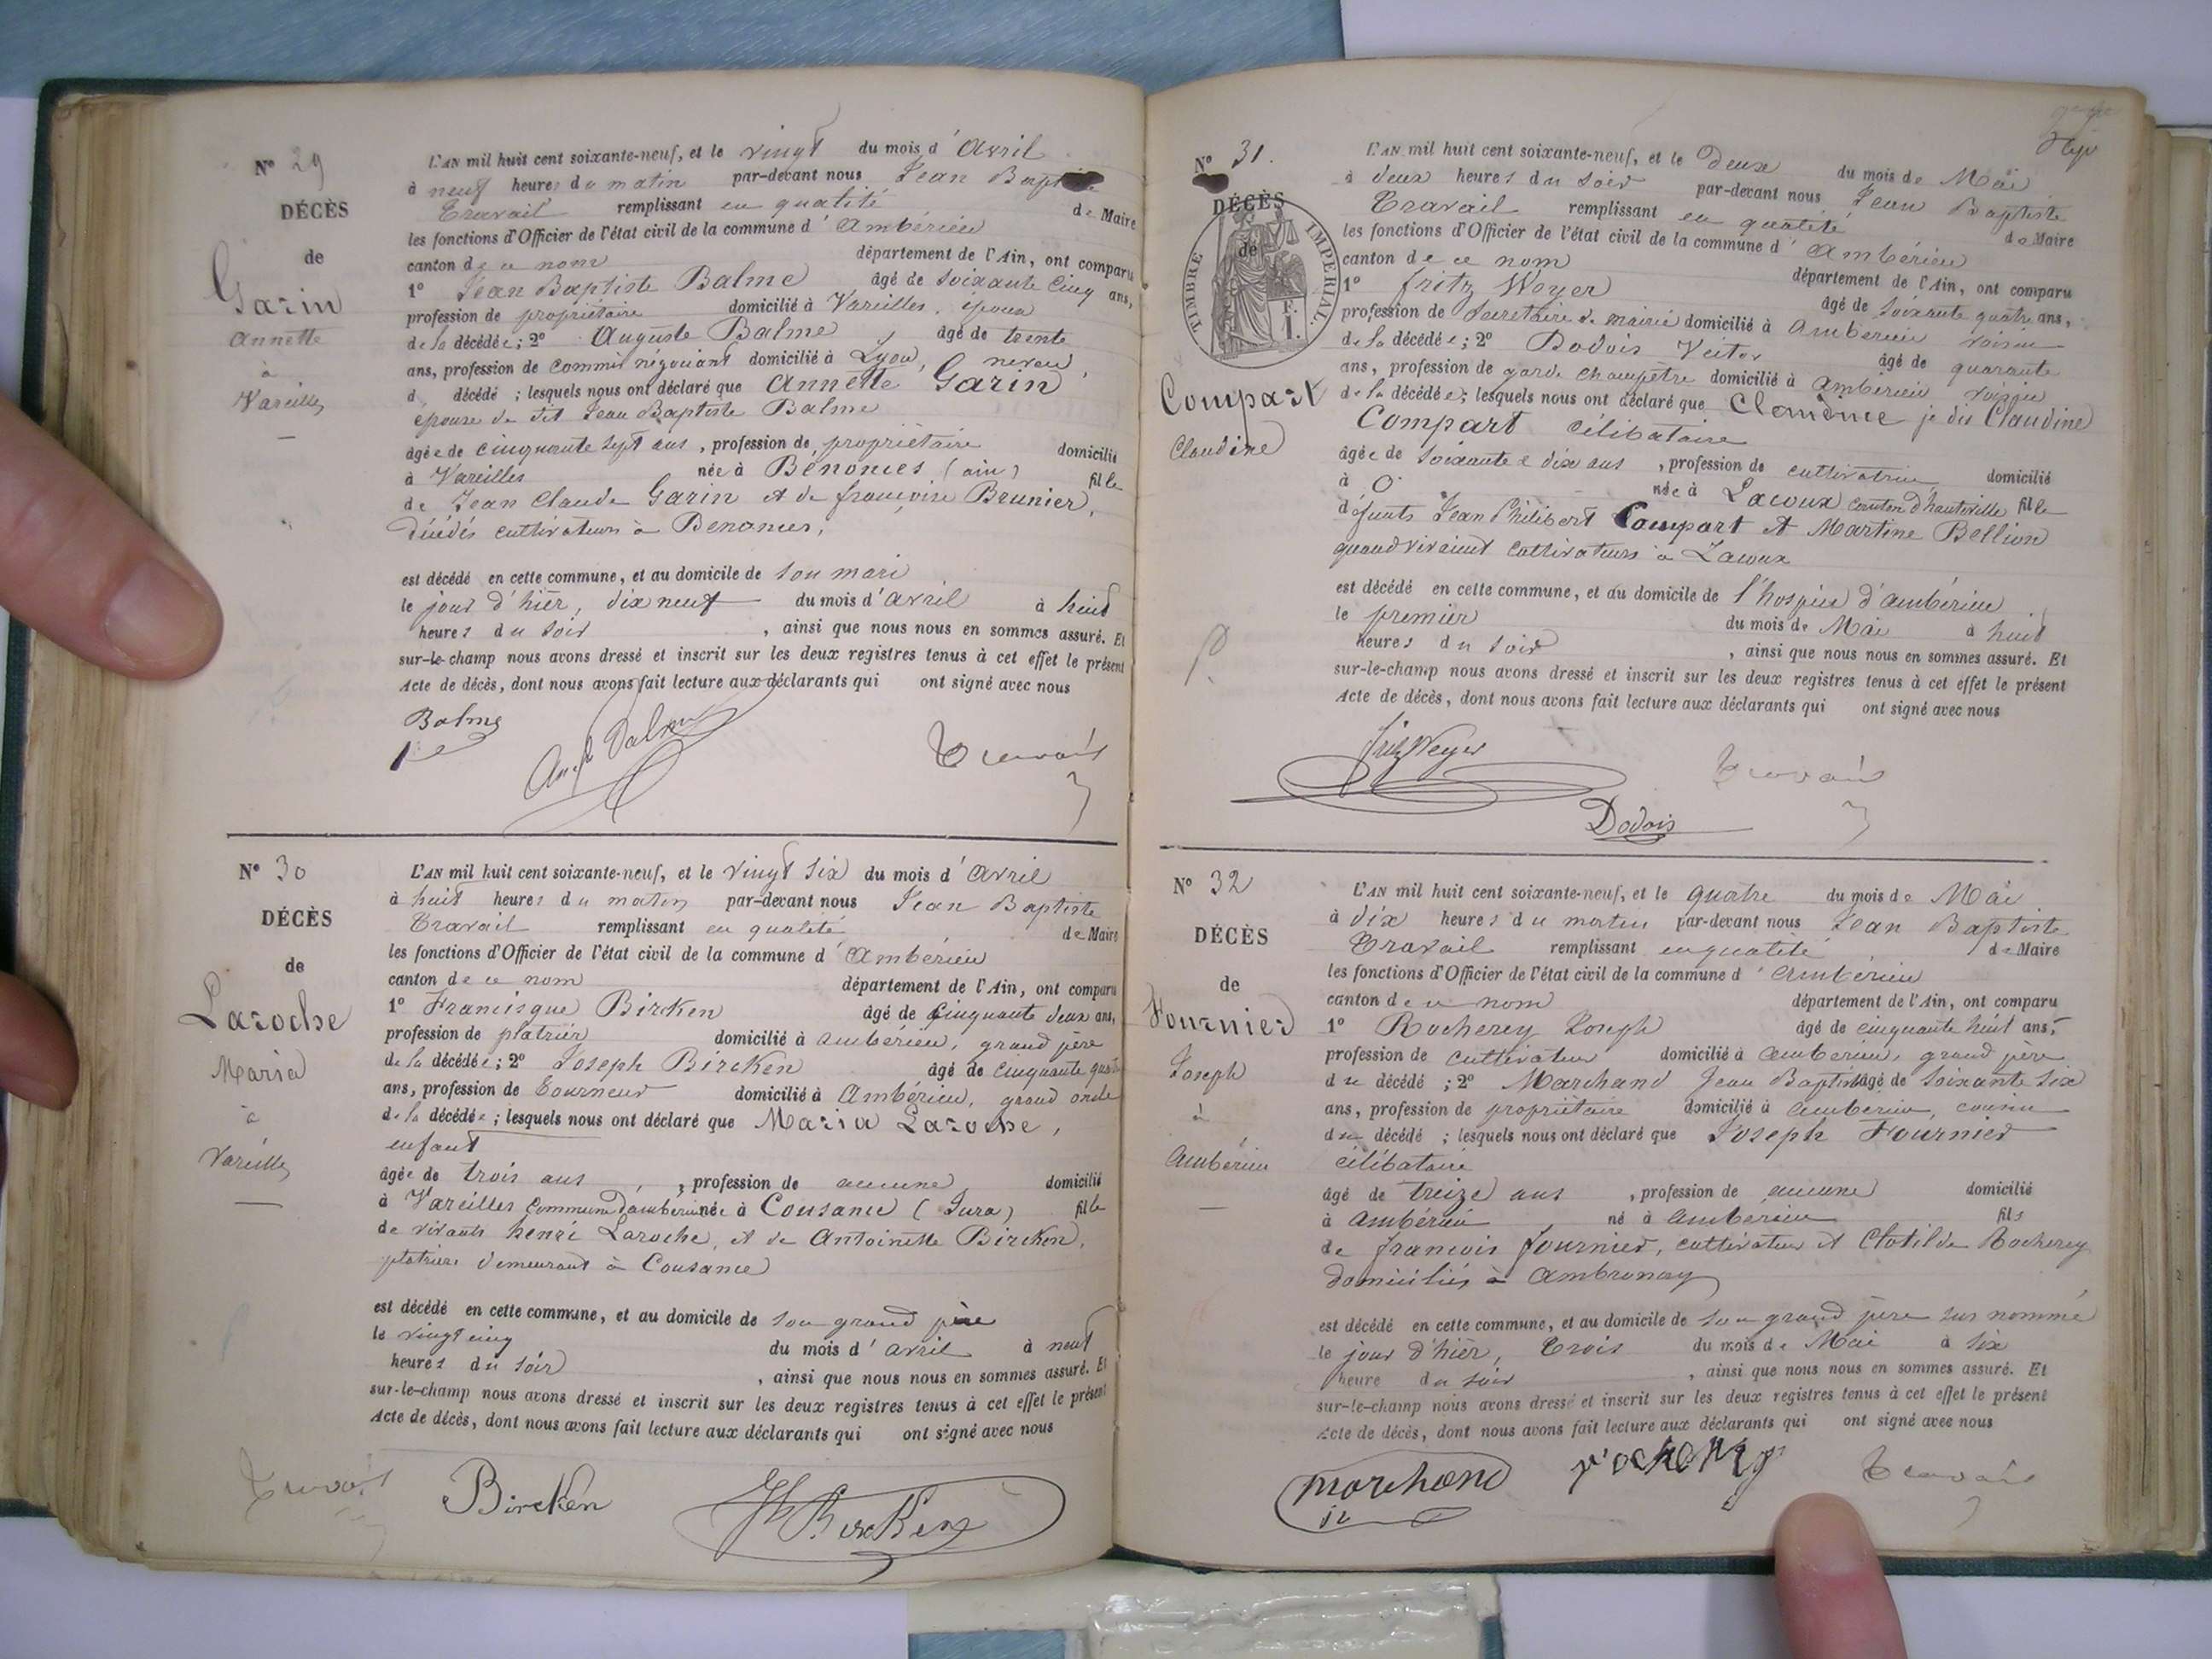 N° 29
DÉCÈS
de
Garin
Annette
à
Vareilles
L'AN mil huit cent soixante-neuf, et le vingt du mois d'Avril
à neuf heures du matin par-devant nous Jean Baptiste
Travail remplissant en qualité de Maire
les fonctions d'Officier de l'état civil de la commune d'Ambérieu
canton de ce nom département de l'Ain, ont comparu
1° Jean Baptiste Balme âgé de soixante cinq ans,
profession de propriétaire domicilié à Vareilles, époux
de la décédée; 2° Auguste Balme âgé de trente
ans, profession de commis négociant domicilié à Lyon, neveu,
d décédé ; lesquels nous ont déclaré que Annette Garin
épouse de dit Jean Baptiste Balme
âgée de cinquante sept ans, profession de propriétaire domicilié
à Vareilles née à Bénonces (ain) fille
de Jean Claude Garin et de françoise Brunier,
décédés cultivateurs à Benonces,
est décédé en cette commune, et au domicile de son mari
le jour d'hier, dix neuf du mois d'avril à huit
heures du soir, ainsi que nous nous en sommes assuré. Et
sur-le-champ nous avons dressé et inscrit sur les deux registres tenus à cet effet le présent
Acte de décès, dont nous avons fait lecture aux déclarants qui ont signé avec nous
Balme
Travail
N° 30
DÉCÈS
de
Laroche
Maria
à
Vareilles
L'AN mil huit cent soixante-neuf, et le vingt six du mois d'Avril
à huit heures du matin par-devant nous Jean Baptiste
Travail remplissant en qualité de Maire
les fonctions d'Officier de l'état civil de la commune d'Ambérieu
canton de ce nom département de l'Ain, ont comparu
1° Francisque Bircken âgé de cinquante deux ans,
profession de platrier domicilié à ambérieu, grand père
de la décédée; 2° Joseph Bircken âgé de cinquante quatre
ans, profession de tourneur domicilié à Ambérieu, grand oncle
de la décédée ; lesquels nous ont déclaré que Maria Laroche,
enfant
âgée de trois ans, profession de aucune domicilié
à Vareilles commune d'ambérieu née à Cousance (Jura) fille
de vivants henri Laroche, et de Antoinette Bircken,
platriers demeurant à Cousance
est décédé en cette commune, et au domicile de son grand père
le vingt cinq du mois d'avril à neuf
heures du soir, ainsi que nous nous en sommes assuré. Et
sur-le-champ nous avons dressé et inscrit sur les deux registres tenus à cet effet le présent
Acte de décès, dont nous avons fait lecture aux déclarants qui ont signé avec nous
Travail Bircken Bircken
N° 31.
DÉCÈS
de
TIMBRE IMPÉRIAL
1 F.
Compart
Claudine
L'AN mil huit cent soixante-neuf, et le deux du mois de Mai
à deux heures du soir par-devant nous Jean Baptiste
Travail remplissant en qualité de Maire
les fonctions d'Officier de l'état civil de la commune d'Ambérieu
canton de ce nom département de l'Ain, ont comparu
1° fritz Weyer âgé de soixante quatre ans,
profession de secrétaire de mairie domicilié à Ambérieu voisin
de la décédée; 2° Dodois Victor âgé de quarante
ans, profession de garde champêtre domicilié à ambérieu voisin
de la décédée; lesquels nous ont déclaré que je dis Claudine
Compart célibataire
âgée de soixante e dix ans, profession de cultivatrice domicilié
à O née à Lacoux canton d'hauteville fille
défunts Jean Philibert Compart et Martine Bellion
quand vivaient cultivateurs à Lacoux
est décédé en cette commune, et au domicile de l'hospice d'ambérieu
le premier du mois de Mai à huit
heures du soir, ainsi que nous nous en sommes assuré. Et
sur-le-champ nous avons dressé et inscrit sur les deux registres tenus à cet effet le présent
Acte de décès, dont nous avons fait lecture aux déclarants qui ont signé avec nous
Fritz Weyer Travail
Dodois
N° 32
DÉCÈS
de
Fournier
Joseph
à
Ambérieu
L'AN mil huit cent soixante-neuf, et le quatre du mois de Mai
à dix heures du matin par-devant nous Jean Baptiste
Travail remplissant en qualité de Maire
les fonctions d'Officier de l'état civil de la commune d'Ambérieu
canton de ce nom département de l'Ain, ont comparu
1° Rocherey Joseph âgé de cinquante huit ans,
profession de cultivateur domicilié à ambérieu, grand père
du décédé ; 2° Marchand Jean Baptiste âgé de soixante six
ans, profession de propriétaire domicilié à ambérieu, cousin
du décédé ; lesquels nous ont déclaré que Joseph Fournier
célibataire
âgé de treize ans, profession de aucune domicilié
à ambérieu né à ambérieu fils
de françois fournier, cultivateur et Clotilde Rocherey
domiciliés à ambronay
est décédé en cette commune, et au domicile de son grand père sus nommé
le jour d'hier, trois du mois de Mai à six
heure du soir, ainsi que nous nous en sommes assuré. Et
sur-le-champ nous avons dressé et inscrit sur les deux registres tenus à cet effet le présent
Acte de décès, dont nous avons fait lecture aux déclarants qui ont signé avec nous
marchand rocherey Travail